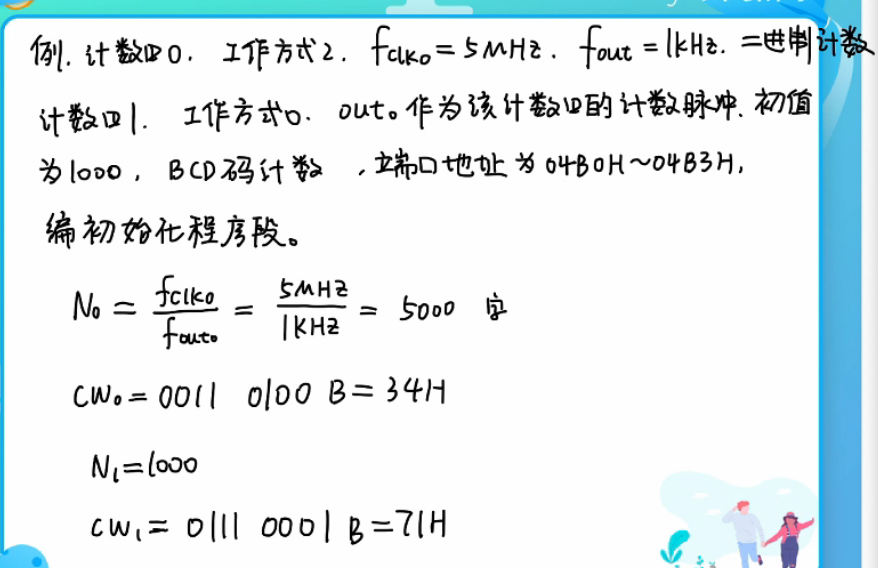 例. 计数四0. 工作方式2. fclk0 = 5MHz. fout = 1kHz. 二进制计数
计数四1. 工作方式0. out0作为该计数四的计数脉冲. 初值
为1000, BCD码计数, 端口地址为04B0H~04B3H,
编初始化程序段。
N0 = fclk0/fout0 = 5MHz/1KHz = 5000 字
CW0 = 0011 0100 B = 34H
N1 = 1000
CW1 = 0111 0001 B = 71H